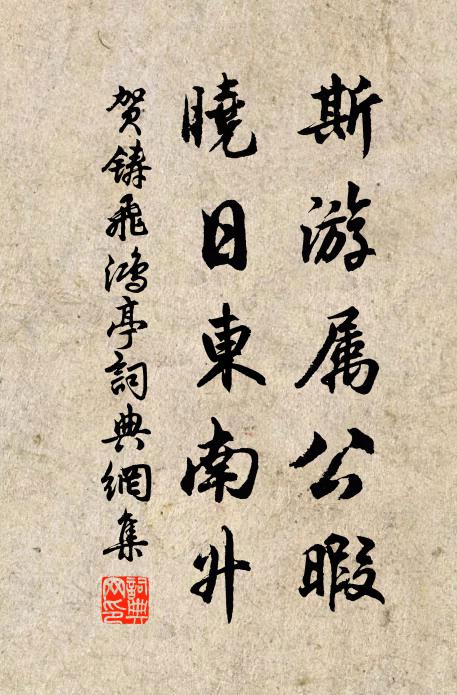 斯游属公暇
曉日東南升
贺鑄飛鴻亭詞典網集
詞典网印